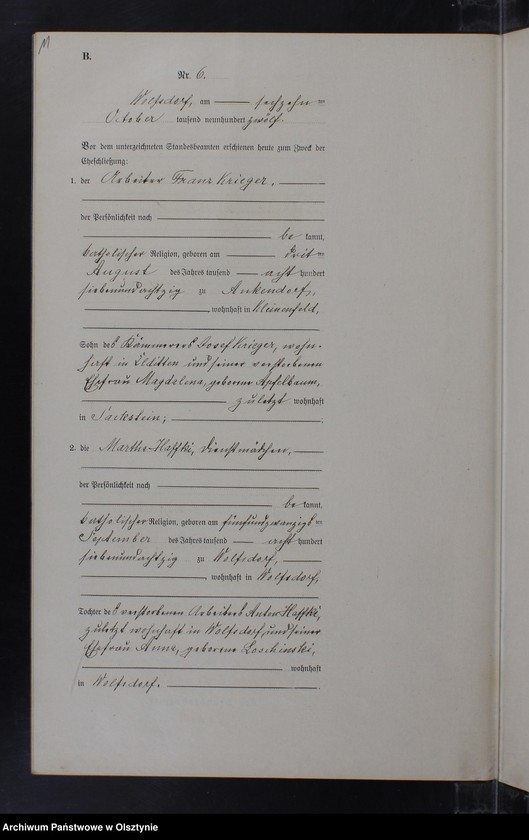 M
B.
Nr. 6.
Wolfsdorf, am sechzehn ten
October tausend neunhundert zwölf.
Vor dem unterzeichneten Standesbeamten erschienen heute zum Zweck der
Eheschließung:
1. der Arbeiter Franz Krieger,
der Persönlichkeit nach
be kannt,
katholischer Religion, geboren am drit ten
August des Jahres tausend acht hundert
siebenundachtzig zu Ankendorf,
, wohnhaft in Kleinenfeld,
Sohn des Kämmerers Josef Krieger, wohn-
haft in Elditten und seiner verstorbenen
Ehefrau Magdalena, geborene Apfelbaum,
zuletzt wohnhaft
in ;
2. die Martha Haffki, Dienstmädchen,
der Persönlichkeit nach
be kannt,
katholischer Religion, geboren am fünfundzwanzigs ten
September des Jahres tausend acht hundert
siebenundachtzig zu Wolfsdorf,
, wohnhaft in Wolfsdorf,
Tochter des verstorbenen Arbeiters Anton Haffki,
zuletzt wohnhaft in Wolfsdorf, und seiner
Ehefrau Anna, geborene Loschinski,
wohnhaft
in Wolfsdorf.
Archiwum Państwowe w Olsztynie